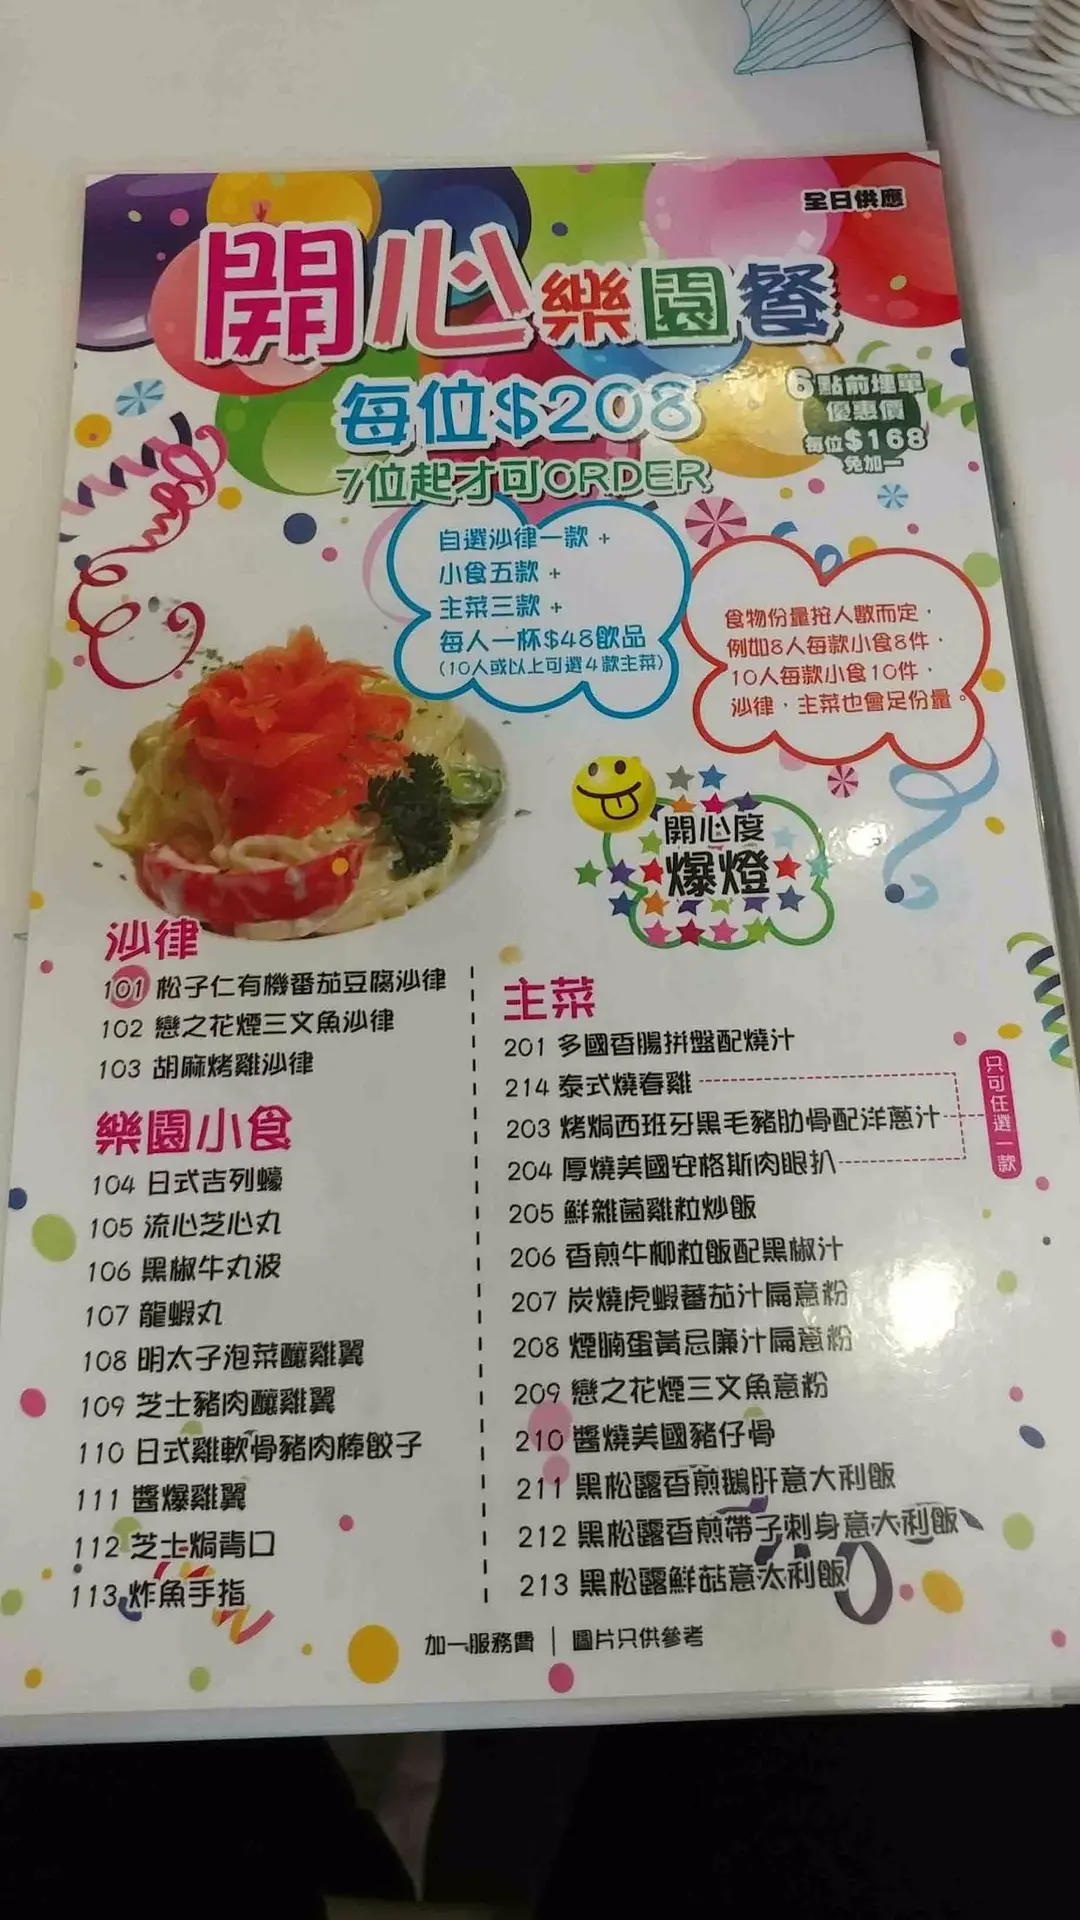 全日供應
開心樂園餐
每位$208
7位起才可ORDER
6點前埋單
優惠價
每位$168
免加一
自選沙律一款 +
小食五款 +
主菜三款 +
每人一杯$48飲品
(10人或以上可選4款主菜)
食物份量按人數而定，
例如8人每款小食8件，
10人每款小食10件，
沙律，主菜也會足份量。
開心度
爆燈
沙律
101 松子仁有機番茄豆腐沙律
102 戀之花煙三文魚沙律
103 胡麻烤雞沙律
樂園小食
104 日式吉列蠔
105 流心芝心丸
106 黑椒牛丸波
107 龍蝦丸
108 明太子泡菜釀雞翼
109 芝士豬肉釀雞翼
110 日式雞軟骨豬肉棒餃子
111 醬爆雞翼
112 芝士焗青口
113 炸魚手指
主菜
201 多國香腸拼盤配燒汁
214 泰式燒春雞
203 烤焗西班牙黑毛豬肋骨配洋蔥汁
204 厚燒美國安格斯肉眼扒
只可任選一款
205 鮮雜菌雞粒炒飯
206 香煎牛柳粒飯配黑椒汁
207 炭燒虎蝦蕃茄汁扁意粉
208 煙腩蛋黃忌廉汁扁意粉
209 戀之花煙三文魚意粉
210 醬燒美國豬仔骨
211 黑松露香煎鵝肝意大利飯
212 黑松露香煎帶子刺身意大利飯
213 黑松露鮮菇意大利飯
加一服務費 | 圖片只供參考